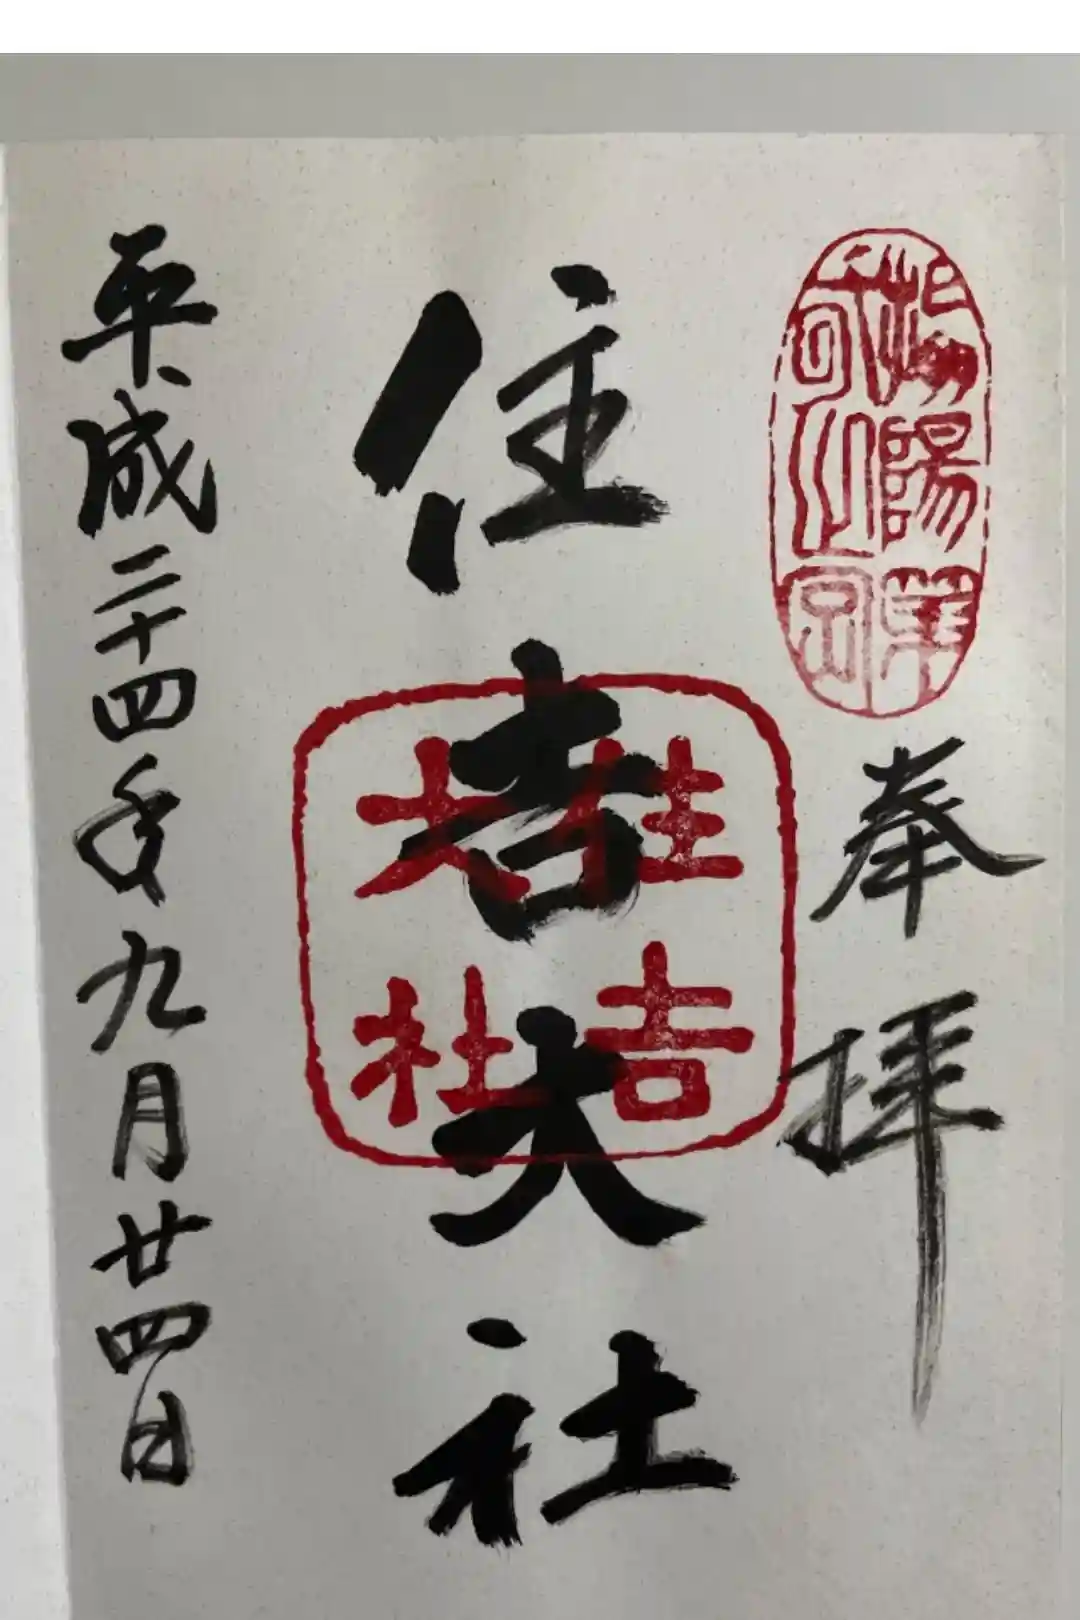 奉拝
住吉大社
住吉
大社
平成二十四年九月廿四日